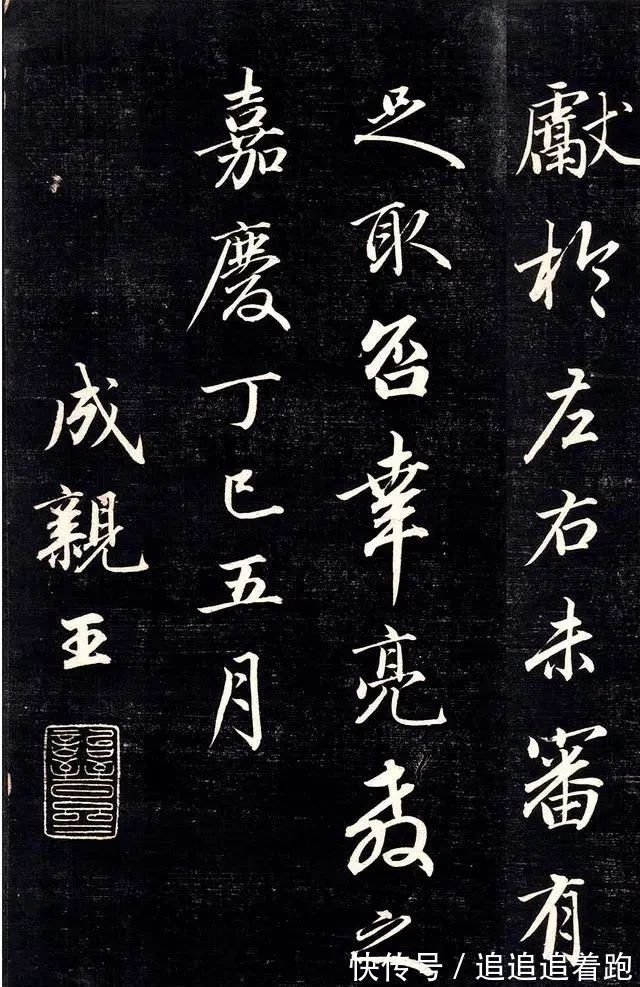 獻於左右未審有
足取否幸亮教之
嘉慶丁巳五月
成親王
快传号/追追追着跑